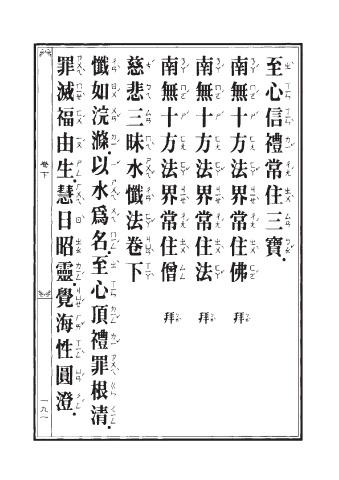 至心信禮常住三寶.
南無十方法界常住佛 拜
南無十方法界常住法 拜
南無十方法界常住僧 拜
慈悲三昧水懺法卷下
懺如浣滌.以水爲名.至心頂禮罪根清.
罪滅福由生.慧日昭靈.覺海性圓澄.
卷下
一九一